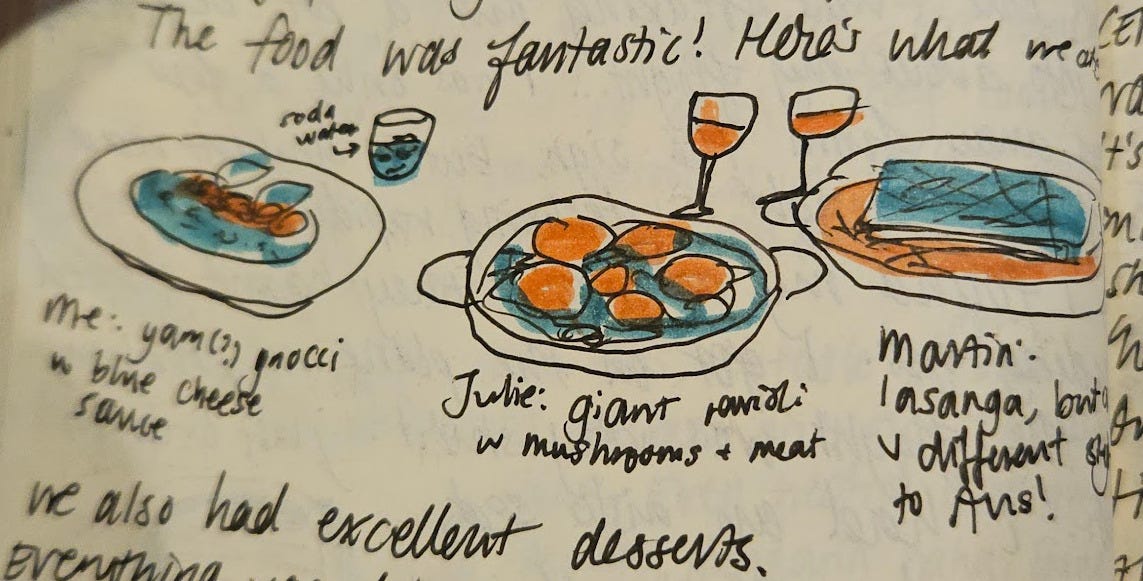 The food was fantastic! Here's what we
soda
water
me: yam(?) gnocci
w blue cheese
sauce
Julie: giant ravioli
w mushrooms + meat
Martin:
lasanga, but
v different
to Aus!
we also had excellent desserts.
Everything